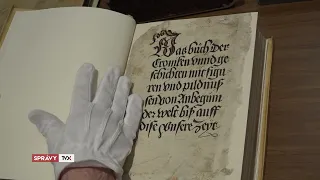 Das büch der
Croniken vnnd ge
schichten mit figu
ren vnd pildnuß
sen von Anbeginn
der welt biß auff
dise vnsere Zeyt
SPRÁVY TVX